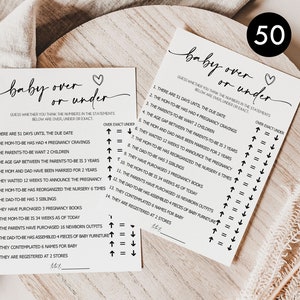 50
baby over
or under
GUESS WHETHER YOU THINK THE NUMBERS IN THE STATEMENTS
BELOW ARE OVER, UNDER OR EXACT.
OVER EXACT UNDER
1. THERE ARE 51 DAYS UNTIL THE DUE DATE
2. THE MOM-TO-BE HAS HAD 4 PREGNANCY CRAVINGS
3. THE PARENTS-TO-BE WANT 2 CHILDREN
4. THE AGE GAP BETWEEN THE PARENTS-TO-BE IS 3 YEARS
5. MOM AND DAD HAVE BEEN MARRIED FOR 2 YEARS
6. THEY WAITED 12 WEEKS TO ANNOUNCE THE PREGNANCY
7. THE MOM-TO-BE HAS REORGANIZED THE NURSERY 6 TIMES
8. THE DAD-TO-BE HAS 3 SIBLINGS
9. THEY HAVE PURCHASED 3 PREGNANCY BOOKS
10. THE MOM-TO-BE IS 34 WEEKS AS OF TODAY
11. THEY HAVE PURCHASED 16 NEWBORN OUTFITS
12. THE DAD-TO-BE ASSEMBLED 4 PIECES OF BABY FURNITURE
13. THEY CONTEMPLATED 6 NAMES FOR BABY
14. THEY ARE REGISTERED AT 2 STORES
baby over
or under
GUESS WHETHER YOU THINK THE NUMBERS IN THE STATEMENTS
BELOW ARE OVER, UNDER OR EXACT.
OVER EXACT UNDER
THERE ARE 51 DAYS UNTIL THE DUE DATE
THE MOM-TO-BE HAS HAD 4 PREGNANCY CRAVINGS
THE PARENTS-TO-BE WANT 2 CHILDREN
THE AGE GAP BETWEEN THE PARENTS-TO-BE IS 3 YEARS
MOM AND DAD HAVE BEEN MARRIED FOR 2 YEARS
THEY WAITED 12 WEEKS TO ANNOUNCE THE PREGNANCY
THE MOM-TO-BE HAS REORGANIZED THE NURSERY 6 TIMES
THE DAD-TO-BE HAS 3 SIBLINGS
THEY HAVE PURCHASED 3 PREGNANCY BOOKS
THE MOM-TO-BE IS 34 WEEKS AS OF TODAY
THEY HAVE PURCHASED 16 NEWBORN OUTFITS
THE DAD-TO-BE ASSEMBLED 4 PIECES OF BABY FURNITURE
THEY CONTEMPLATED 6 NAMES FOR BABY
THEY ARE REGISTERED AT 2 STORES